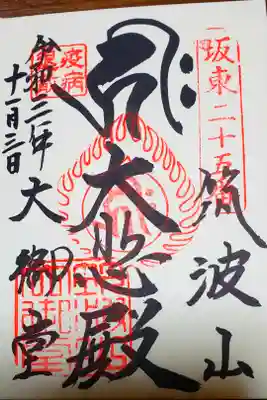 坂東二十五番
筑波山
大悲殿
疫病
大御堂
令和二年
十一月三日